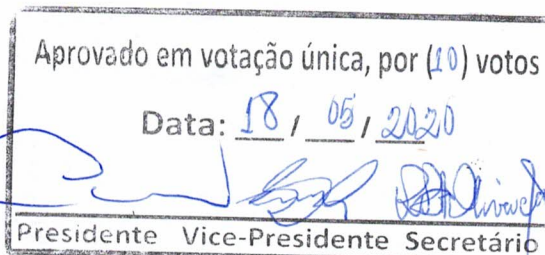 Aprovado em votação única, por (10) votos
Data: 18 / 05 / 2020
Presidente Vice-Presidente Secretário